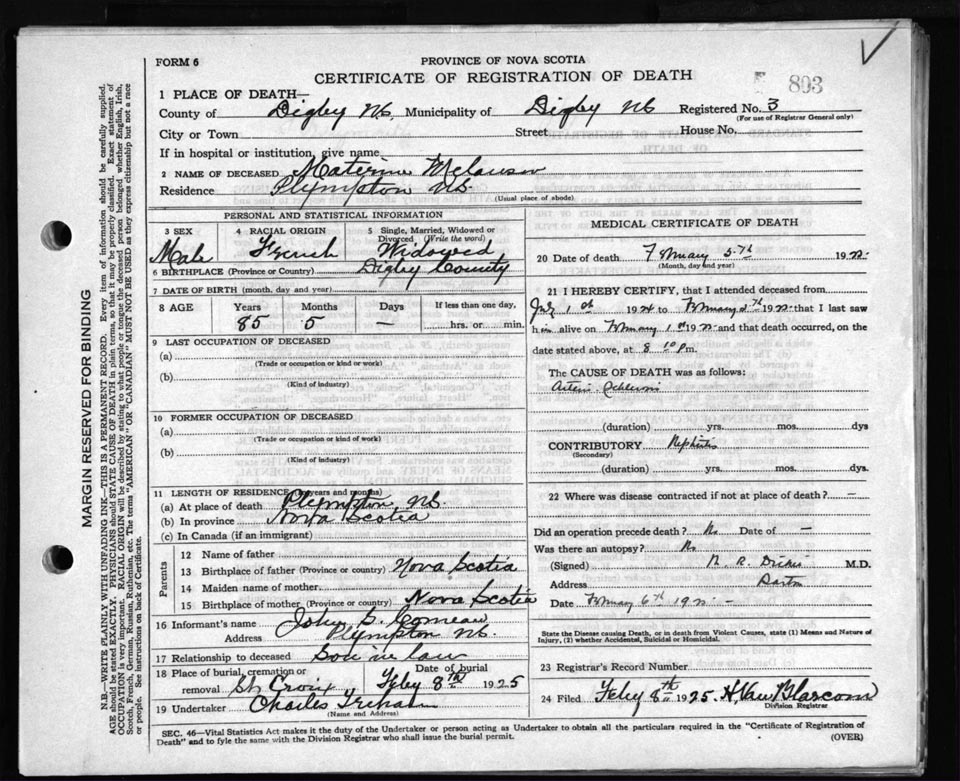 FORM 6
PROVINCE OF NOVA SCOTIA
CERTIFICATE OF REGISTRATION OF DEATH
803
1 PLACE OF DEATH—
County of Digby N.S. Municipality of Digby N.S. Registered No. 3
(For use of Registrar General only)
City or Town Street House No.
If in hospital or institution, give name
2 NAME OF DECEASED Melanson
Residence Plympton N.S.
(Usual place of abode)
PERSONAL AND STATISTICAL INFORMATION
3 SEX
Male
4 RACIAL ORIGIN
French
5 Single, Married, Widowed or
Divorced (Write the word)
Widowed
6 BIRTHPLACE (Province or Country) Digby County
7 DATE OF BIRTH (month, day and year)
8 AGE
Years Months Days If less than one day,
85 5 — hrs. or min.
9 LAST OCCUPATION OF DECEASED
(a)
(Trade or occupation or kind of work)
(b)
(Kind of industry)
10 FORMER OCCUPATION OF DECEASED
(a)
(Trade or occupation or kind of work)
(b)
(Kind of industry)
11 LENGTH OF RESIDENCE (in years and months)
(a) At place of death Plympton N.S.
(b) In province Nova Scotia
(c) In Canada (if an immigrant)
PARENTS
12 Name of father
13 Birthplace of father (Province or country) Nova Scotia
14 Maiden name of mother
15 Birthplace of mother (Province or country) Nova Scotia
16 Informant's name John S. Comeau
Address Plympton N.S.
17 Relationship to deceased Son in law
18 Place of burial, cremation or Date of burial
removal St Croix Feby 8th 1925
19 Undertaker Charles
(Name and Address)
MEDICAL CERTIFICATE OF DEATH
20 Date of death February 5th 192
(Month, day and year)
21 I HEREBY CERTIFY, that I attended deceased from
1st 1924 to February 192 that I last saw
him alive on February 1st 192 and that death occurred, on the
date stated above, at 8 10 p.m.
The CAUSE OF DEATH was as follows:
(duration) yrs. mos. dys
CONTRIBUTORY Nephritis
(Secondary)
(duration) yrs. mos. dys.
22 Where was disease contracted if not at place of death? —
Did an operation precede death? No Date of —
Was there an autopsy? No
(Signed) M.D.
Address Barton
Date February 6th 192
State the Disease causing Death, or in death from Violent Causes, state (1) Means and Nature of
Injury, (2) whether Accidental, Suicidal or Homicidal.
23 Registrar's Record Number
24 Filed Feby 8th 1925 H. Van Blarcom
Division Registrar
SEC. 46—Vital Statistics Act makes it the duty of the Undertaker or person acting as Undertaker to obtain all the particulars required in the "Certificate of Registration of
Death" and to fyle the same with the Division Registrar who shall issue the burial permit.
(OVER)
MARGIN RESERVED FOR BINDING
N.B.—WRITE PLAINLY WITH UNFADING INK—THIS IS A PERMANENT RECORD. Every item of information should be carefully supplied.
AGE should be stated EXACTLY. PHYSICIANS should STATE CAUSE OF DEATH in plain terms, so that it may be properly classified. Exact statement of
OCCUPATION is very important. RACIAL ORIGIN will be described by stating to what people or tongue the deceased person belonged whether English, Irish,
Scotch, French, German, Russian, Ruthenian, etc. The terms "AMERICAN" OR "CANADIAN" MUST NOT BE USED as they express citizenship but not a race
or people. See instructions on back of Certificate.